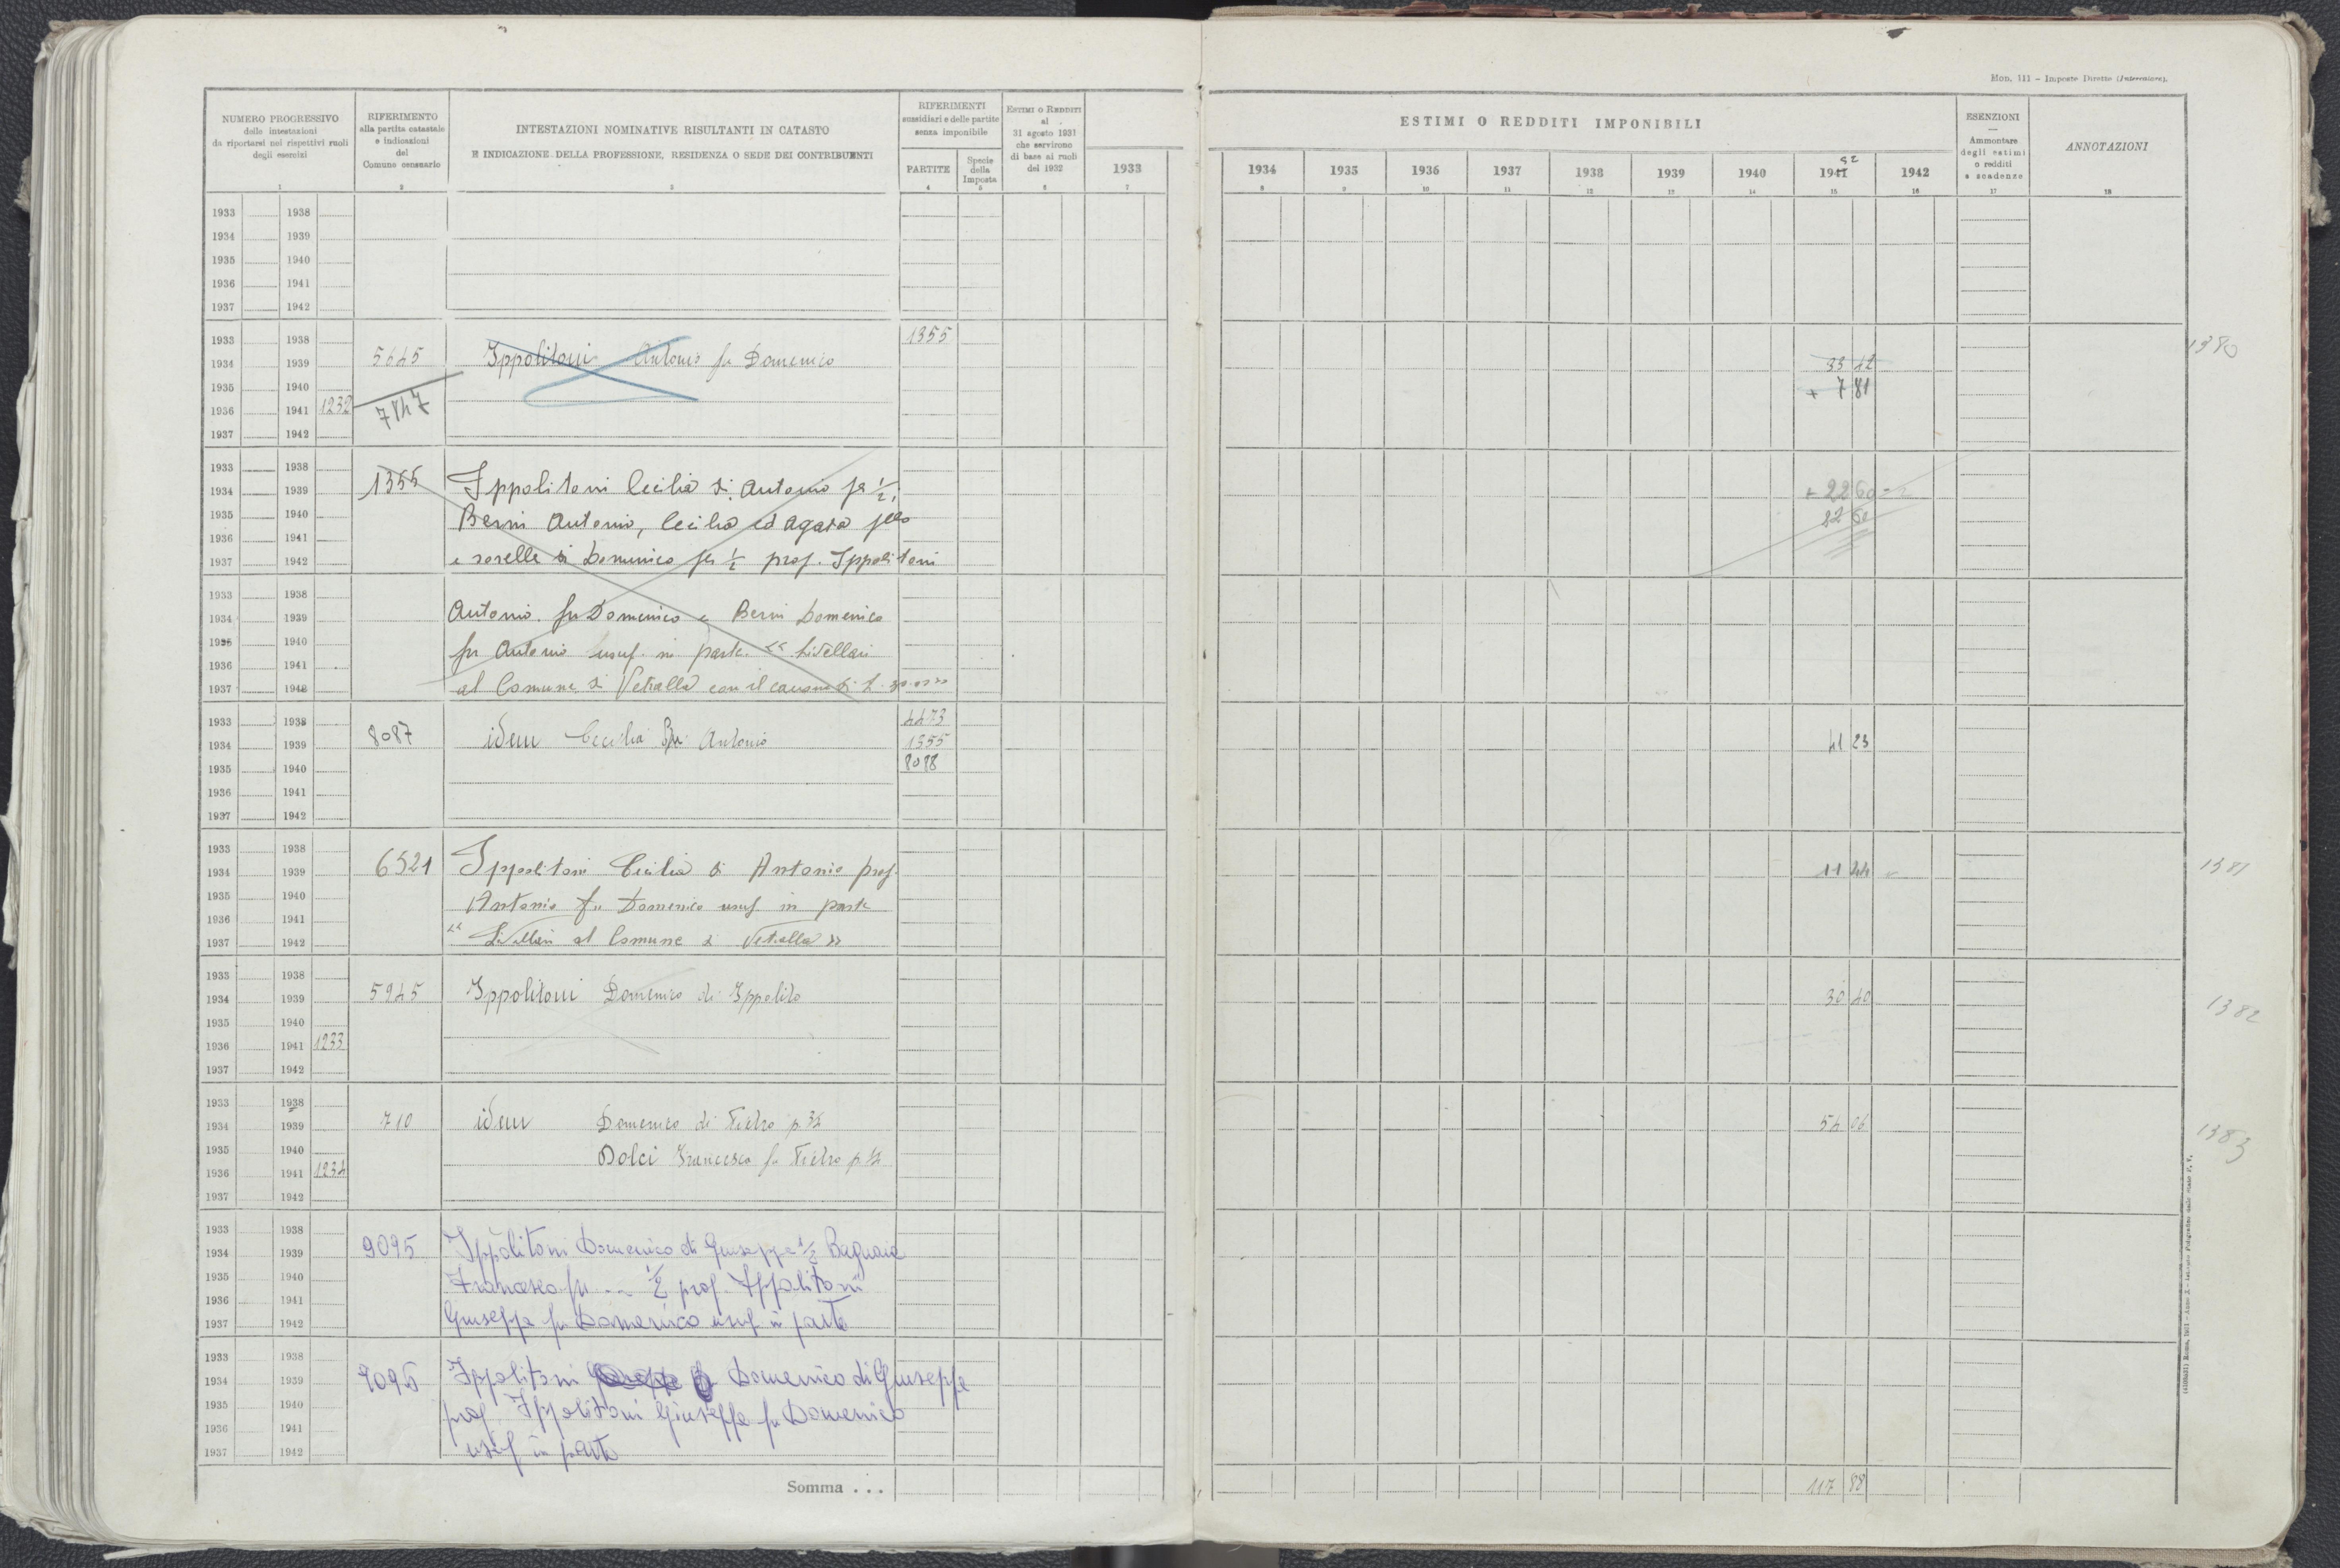 Mod. 111 - Imposte Dirette (Intercalare).
NUMERO PROGRESSIVO
delle intestazioni
da riportarsi nei rispettivi ruoli
degli esercizi
1
RIFERIMENTO
alla partita catastale
e indicazioni
del
Comune censuario
2
INTESTAZIONI NOMINATIVE RISULTANTI IN CATASTO
E INDICAZIONE DELLA PROFESSIONE, RESIDENZA O SEDE DEI CONTRIBUENTI
3
RIFERIMENTI
sussidiari e delle partite
senza imponibile
PARTITE
4
Specie
della
Imposta
5
ESTIMI O REDDITI
al
31 agosto 1931
che servirono
di base ai ruoli
del 1932
6
1933
7
ESTIMI O REDDITI IMPONIBILI
1934 1935 1936 1937 1938 1939 1940 1941 1942
52
8 9 10 11 12 13 14 15 16
ESENZIONI
Ammontare
degli estimi
o redditi
e scadenze
17
ANNOTAZIONI
18
1933 1938
1934 1939
1935 1940
1936 1941
1937 1942
1933 1938 1355
1934 1939 5645 Ippolitoni Antonio fu Domenico 33 12 1380
1935 1940 + 7 81
1936 1941 1232 7847
1937 1942
1933 1938
1934 1939 1355 Ippolitoni Cecilia di Antonio per 1/2; + 22 60
1935 1940 Berni Antonio, Cecilia ed Agata 22 60
1936 1941
1937 1942 e sorelle di Domenico per 1/2 prop. Ippolitoni
1933 1938
1934 1939 Antonio fu Domenico e Berni Domenico
1935 1940 fu Antonio usuf. in parte << Livellari
1936 1941
1937 1942 al Comune di Vetralla con il canone di L.
1933 1938 4473
1934 1939 8087 idem Cecilia fu Antonio 1355 41 23
1935 1940 8088
1936 1941
1937 1942
1933 1938
1934 1939 6521 Ippolitoni Cecilia di Antonio prop. 11 44 1381
1935 1940 Antonio fu Domenico usuf in parte
1936 1941
1937 1942 << Livellari al Comune di Vetralla >>
1933 1938
1934 1939 5945 Ippolitoni Domenico di Ippolito 30 40 1382
1935 1940
1936 1941 1233
1937 1942
1933 1938
1934 1939 710 idem Domenico di Pietro p. 54 06 1383
1935 1940 Dolci Francesco fu Pietro p.
1936 1941 1234
1937 1942
1933 1938
1934 1939 9095 Ippolitoni Domenico di Giuseppe 1/2 Bagnaia
1935 1940 Francesco fu .. 1/2 prop. Ippolitoni
1936 1941
1937 1942 Giuseppe fu Domenico usuf in parte
1933 1938
1934 1939 9095 Ippolitoni Domenico di Giuseppe
1935 1940 prop. Ippolitoni Giuseppe fu Domenico
1936 1941
1937 1942 usuf in parte
Somma . . . 117 88